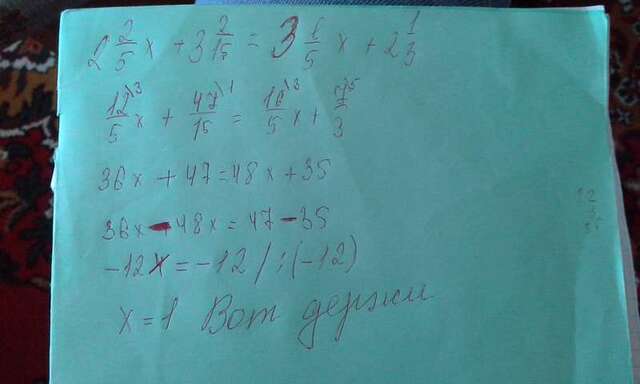 2 2/5 x + 3 2/15 = 3 1/5 x + 2 1/3
12\3/5 x + 47\1/15 = 16\3/5 x + 7\5/3
36x + 47 = 48x + 35
36x - 48x = 47 - 35
-12x = -12 / : (-12)
x = 1 Вот держи